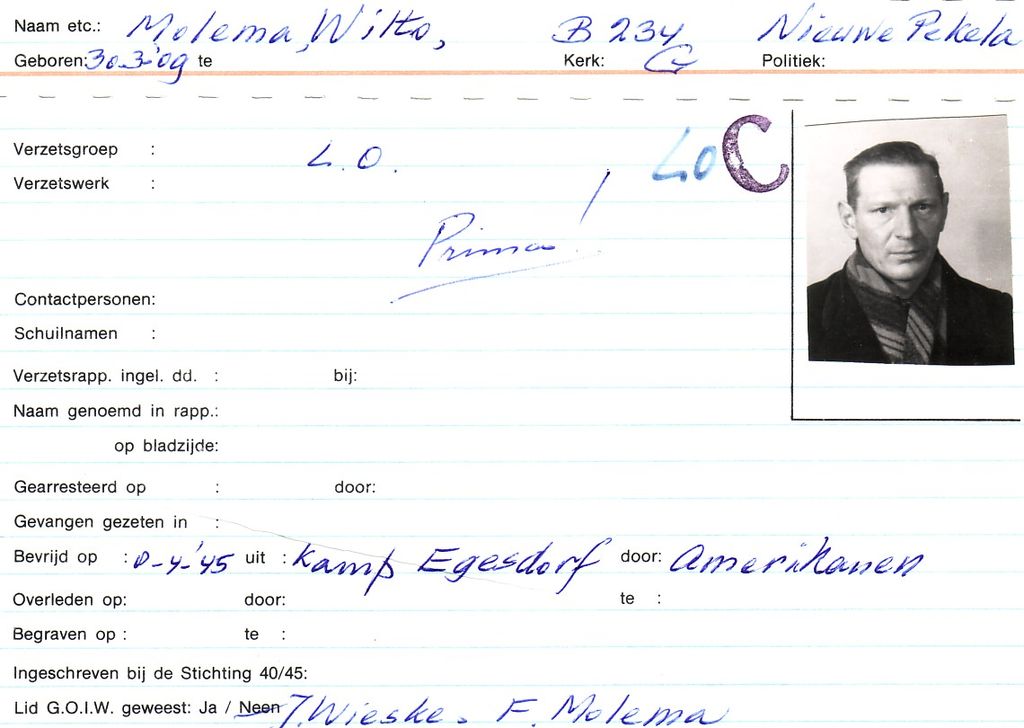 Naam etc.: Molema, Wilto, B 234 Nieuwe Pekela
Geboren: 30-3-'09 te Kerk: G Politiek:
Verzetsgroep : L.O. LO C
Verzetswerk :
Prima!
Contactpersonen:
Schuilnamen :
Verzetsrapp. ingel. dd. : bij:
Naam genoemd in rapp.:
op bladzijde:
Gearresteerd op : door:
Gevangen gezeten in :
Bevrijd op : 0-4-'45 uit : Kamp Egesdorf door: Amerikanen
Overleden op: door: te :
Begraven op : te :
Ingeschreven bij de Stichting 40/45:
Lid G.O.I.W. geweest: Ja / Neen J. Wieske. F. Molema